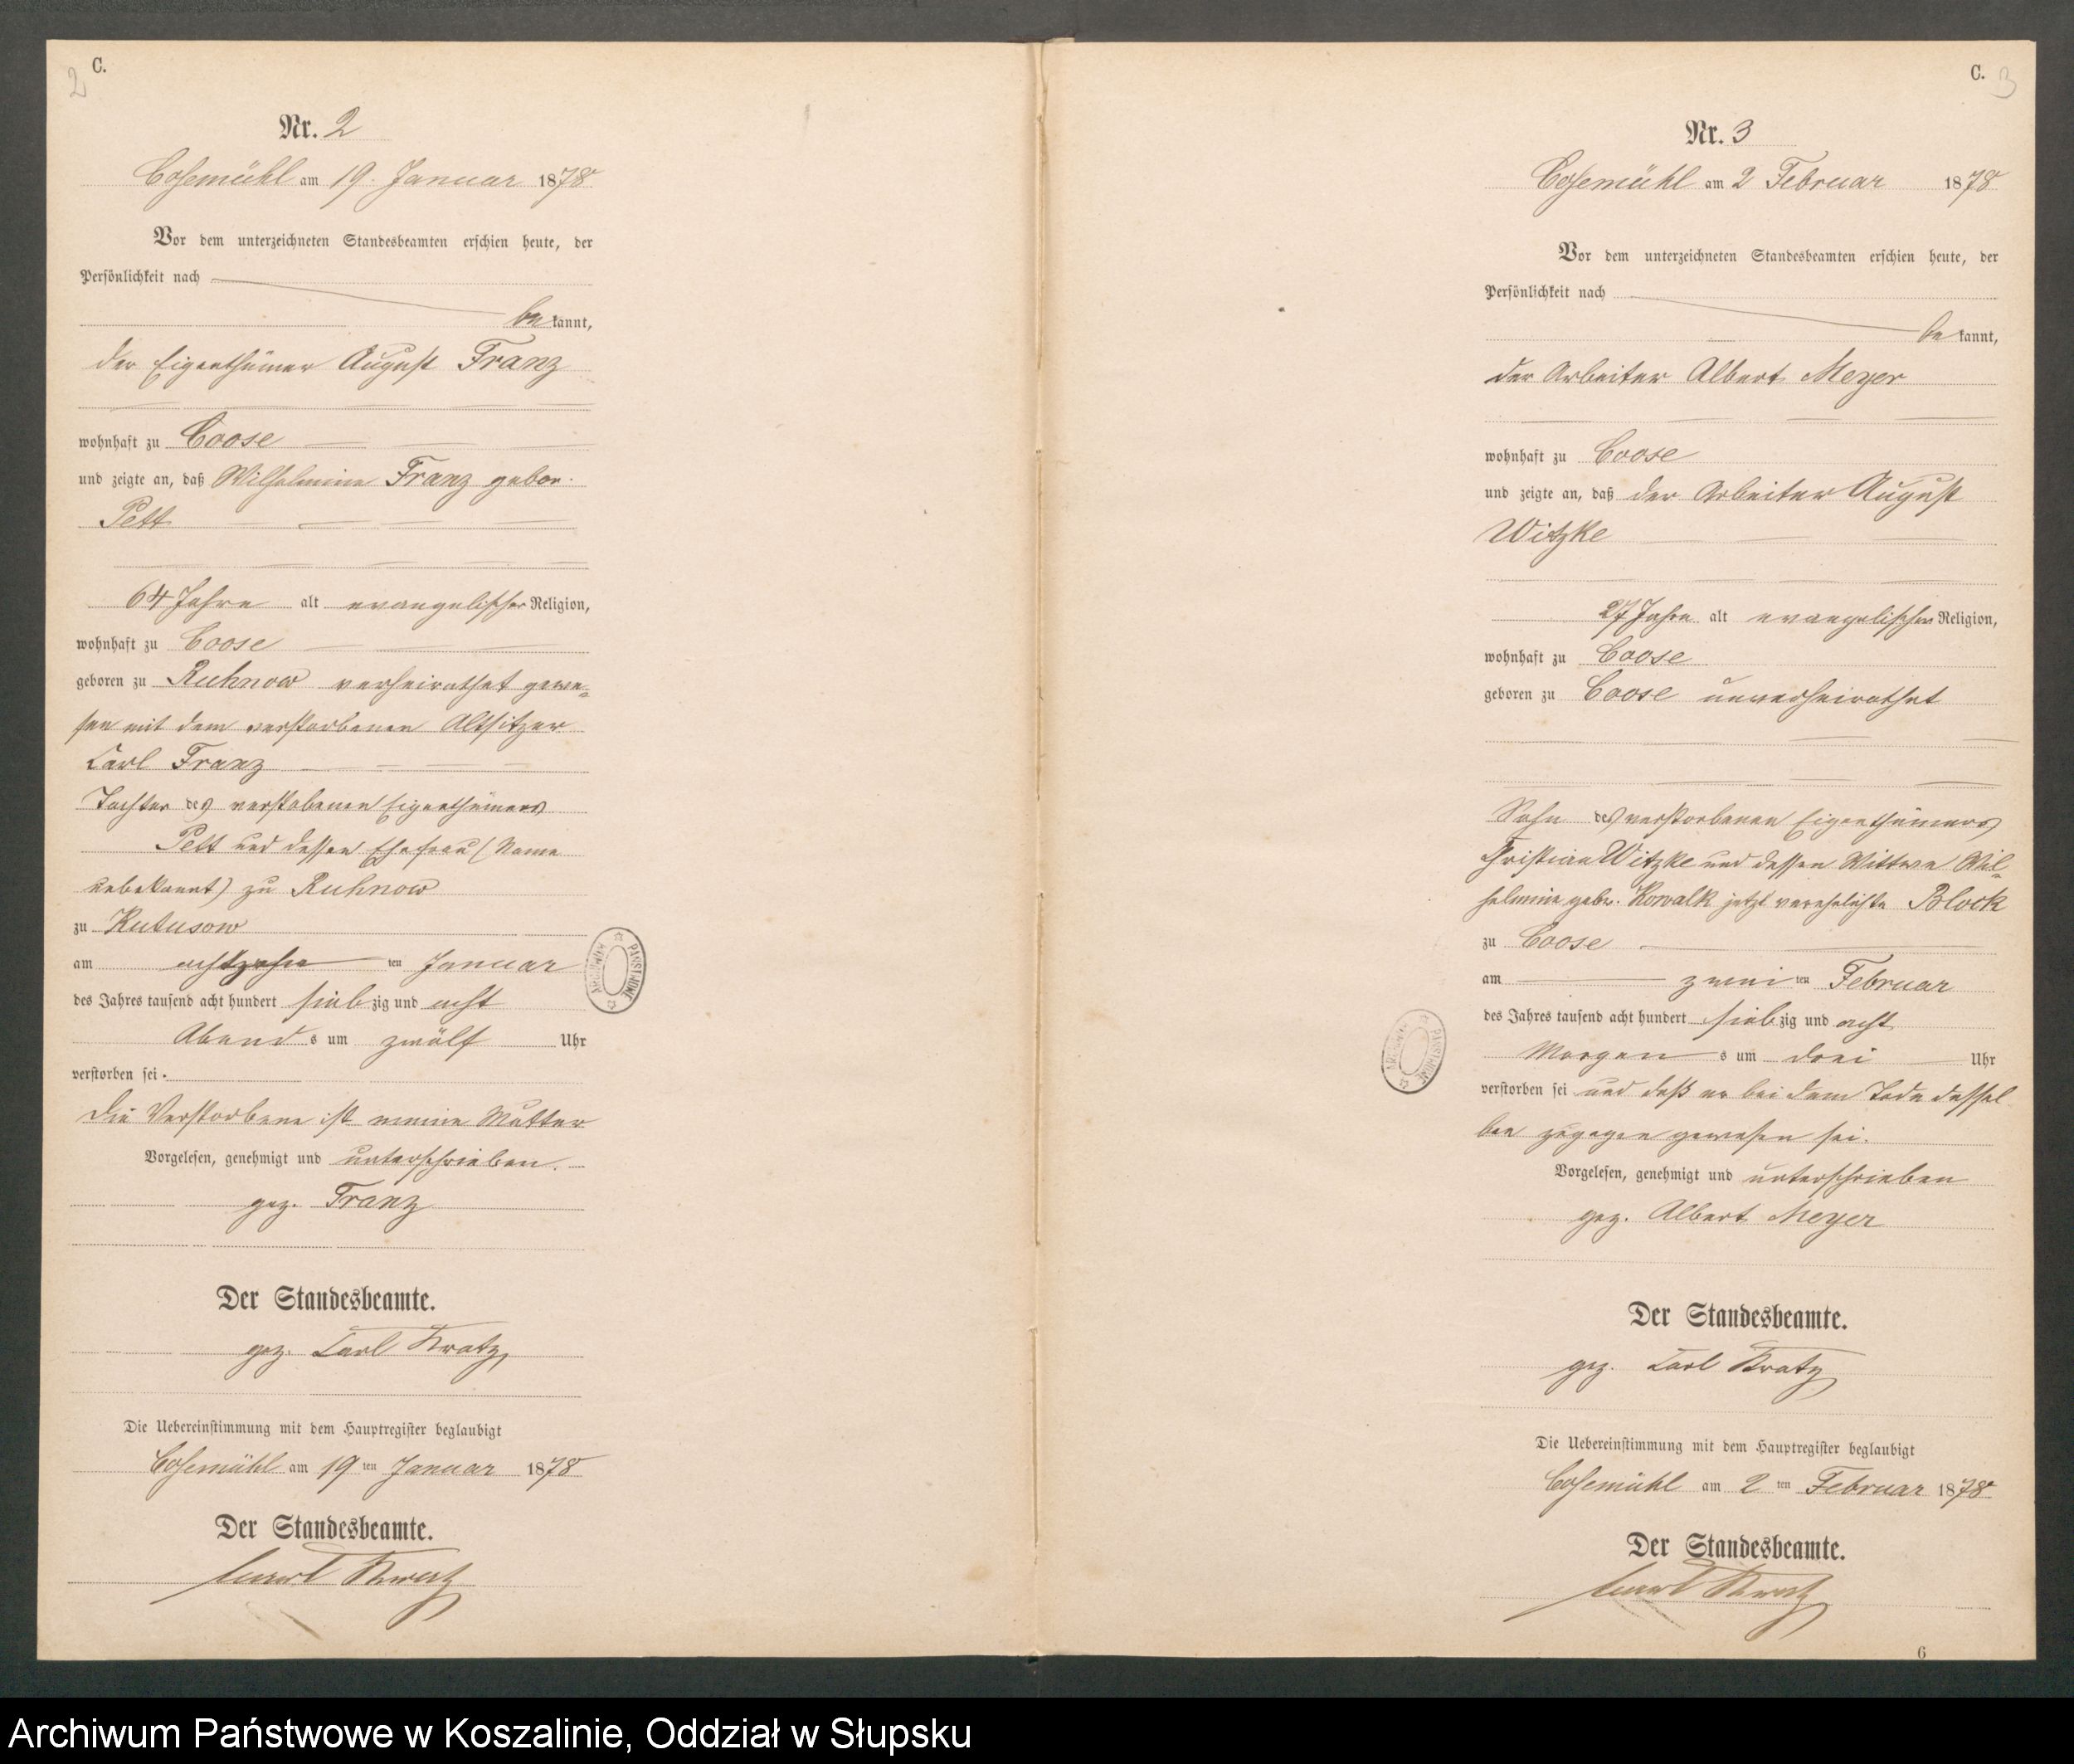 C.
2
Nr. 2
Cosemühl am 19. Januar 1878
Vor dem unterzeichneten Standesbeamten erschien heute, der
Persönlichkeit nach
bekannt,
der Eigenthümer August Franz
wohnhaft zu Coose
und zeigte an, daß Wilhelmine Franz gebor.
Pett
64 Jahre alt evangelischer Religion,
wohnhaft zu Coose
geboren zu Ruhnow verheirathet gewe-
sen mit dem verstorbenen Altsitzer
Carl Franz
Tochter des verstobenen Eigenthümers
Pett und dessen Ehefrau (Name
unbekannt) zu Ruhnow
zu Kutusow
am achtzehn ten Januar
des Jahres tausend acht hundert siebzig und acht
Abends um zwölf Uhr
verstorben sei.
Die Verstorbene ist meine Mutter
Vorgelesen, genehmigt und unterschrieben.
gez. Franz
Der Standesbeamte.
gez. Carl Kratz
Die Uebereinstimmung mit dem Hauptregister beglaubigt
Cosemühl am 19 ten Januar 1878
Der Standesbeamte.
Carl Kratz
ARCHIWUM PAŃSTWOWE
C.
3
Nr. 3
Cosemühl am 2 Februar 1878
Vor dem unterzeichneten Standesbeamten erschien heute, der
Persönlichkeit nach
bekannt,
der Arbeiter Albert Meyer
wohnhaft zu Coose
und zeigte an, daß der Arbeiter August
Witzke
27 Jahre alt evangelischer Religion,
wohnhaft zu Coose
geboren zu Coose unverheirathet
Sohn des verstorbenen Eigenthümers
Christian Witzke und dessen Wittwe Wil-
helmine gebor. Kowalk jetzt verehelichte Block
zu Coose
am zwei ten Februar
des Jahres tausend acht hundert siebzig und acht
Morgens um drei Uhr
verstorben sei und daß er bei dem Tode dessel
ben zugegen gewesen sei.
Vorgelesen, genehmigt und unterschrieben
gez. Albert Meyer
Der Standesbeamte.
gez. Carl Kratz
Die Uebereinstimmung mit dem Hauptregister beglaubigt
Cosemühl am 2 ten Februar 1878
Der Standesbeamte.
Carl Kratz
6
ARCHIWUM PAŃSTWOWE
Archiwum Państwowe w Koszalinie, Oddział w Słupsku